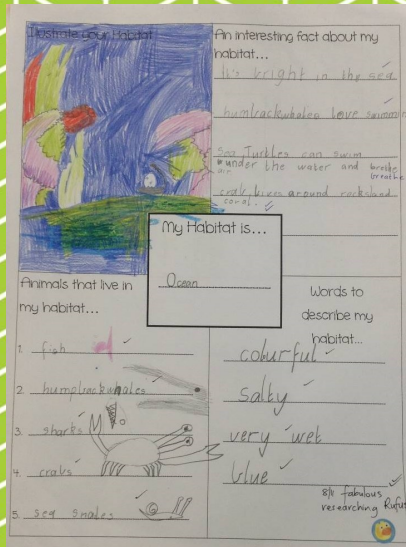 Illustrate your Habitat
An interesting fact about my
habitat...
It's bright in the sea
humbrackwhales love swimmin
Sea Turtles can swim
under the water and brethe
air. breathe
crab lives around rocks and
coral.
My Habitat is...
Ocean
Animals that live in
my habitat...
1. fish
2. humpbackwhales
3. sharks
4. crabs
5. sea snales
Words to
describe my
habitat...
colurful
salty
very wet
blue
8/11 fabulous
researching Rufus